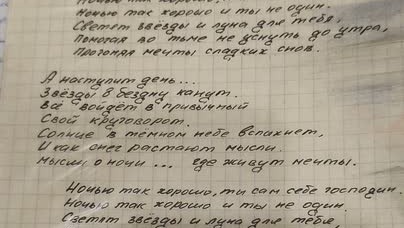 Ночью так хорошо,
Ночью так хорошо и ты не один.
Светят звёзды и луна для тебя,
Помогая во тьме не уснуть до утра,
Прогоняя мечты сладких снов.
А наступит день....
Звёзды в бездну канут.
Всё войдёт в привычный
Свой круговорот.
Солнце в тёмном небе вспыхнет,
И как снег растают мысли.
Мысли о ночи ... где живут мечты.
Ночью так хорошо, ты сам себе господин.
Ночью так хорошо и ты не один.
Светят звёзды и луна для тебя,